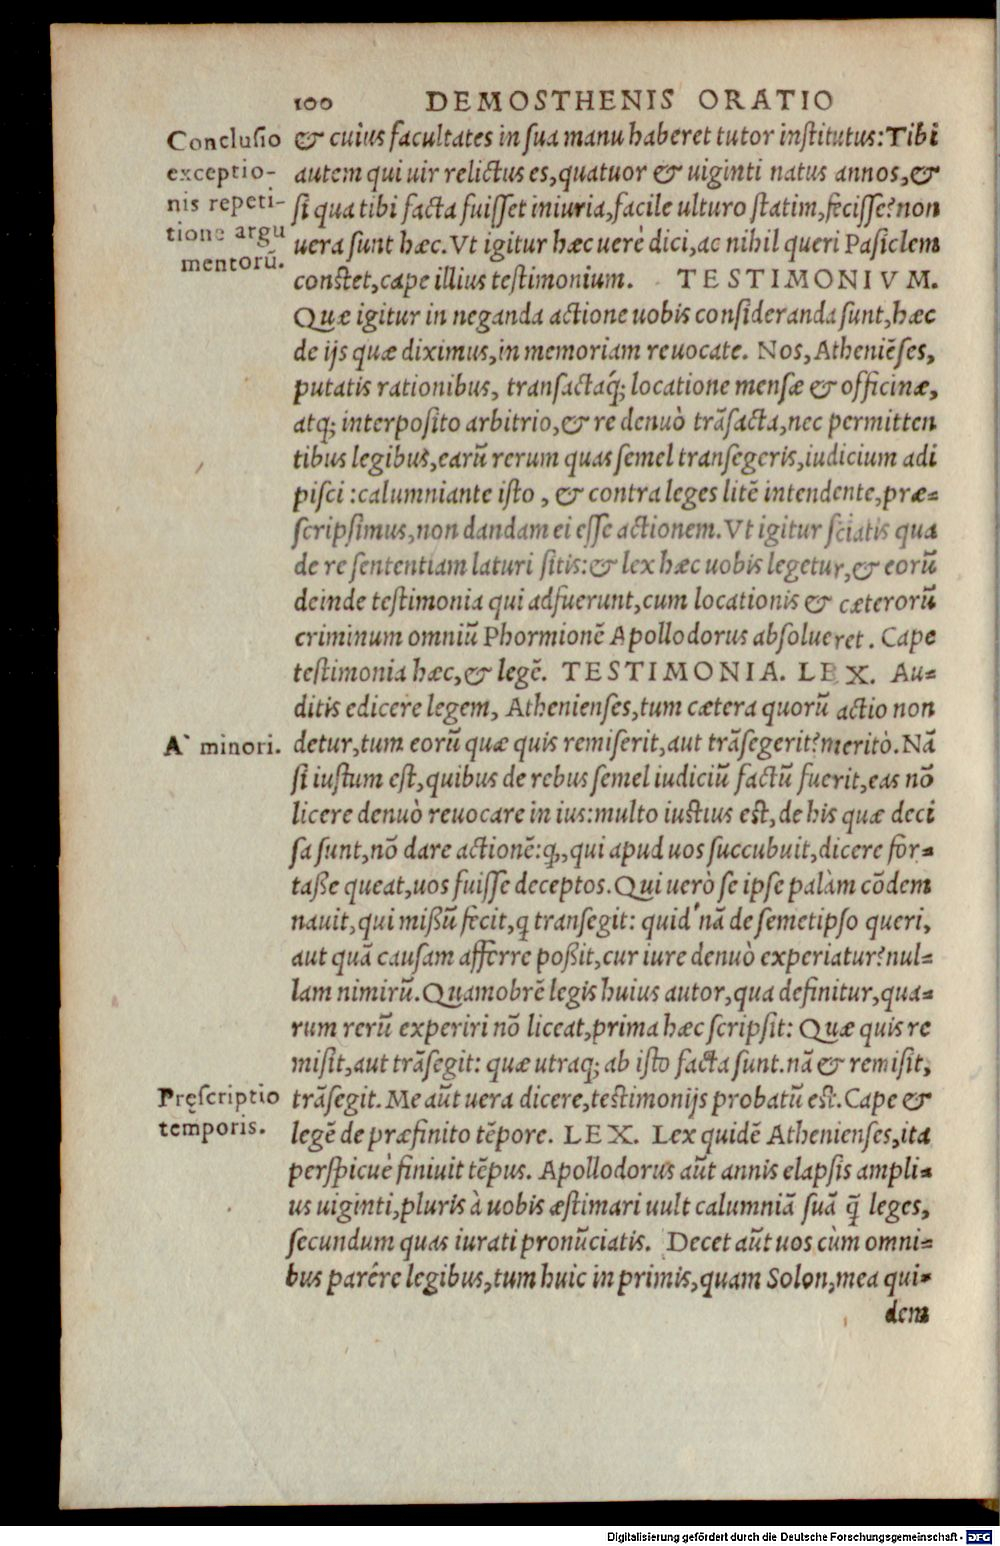 100 DEMOSTHENIS ORATIO
Conclusio
exceptio-
nis repeti-
tione argu
mentorū.
& cuius facultates in sua manu haberet tutor institutus: Tibi
autem qui uir relictus es, quatuor & uiginti natus annos, &
si qua tibi facta fuisset iniuria, facile ulturo statim, fecisse? non
uera sunt hæc. Vt igitur hæc uerè dici, ac nihil queri Pasiclem
constet, cape illius testimonium. TESTIMONIVM.
Quæ igitur in neganda actione uobis consideranda sunt, hæc
de ijs quæ diximus, in memoriam reuocate. Nos, Atheniēses,
putatis rationibus, transactaq́; locatione mensæ & officinæ,
atq; interposito arbitrio, & re denuò trāsacta, nec permitten
tibus legibus, earū rerum quas semel transegeris, iudicium adi
pisci: calumniante isto, & contra leges litē intendente, præ-
scripsimus, non dandam ei esse actionem. Vt igitur sciatis qua
de re sententiam laturi sitis: & lex hæc uobis legetur, & eorū
deinde testimonia qui adfuerunt, cum locationis & cæterorū
criminum omniū Phormionē Apollodorus absolueret. Cape
testimonia hæc, & legē. TESTIMONIA. LEX. Au-
ditis edicere legem, Athenienses, tum cætera quorū actio non
A` minori.
detur, tum eorū quæ quis remiserit, aut trāsegerit? meritò. Nā
si iustum est, quibus de rebus semel iudiciū factū fuerit, eas nō
licere denuò reuocare in ius: multo iustius est, de his quæ deci
sa sunt, nō dare actionē: q, qui apud uos succubuit, dicere for-
taße queat, uos fuisse deceptos. Qui uerò se ipse palàm cōdem
nauit, qui mißū fecit, q transegit: quid'nā de semetipso queri,
aut quā causam afferre poßit, cur iure denuò experiatur? nul-
lam nimirū. Quamobrē legis huius autor, qua definitur, qua-
rum rerū experiri nō liceat, prima hæc scripsit: Quæ quis re
misit, aut trāsegit: quæ utraq; ab isto facta sunt. nā & remisit,
Pręscriptio
temporis.
trāsegit. Me aūt uera dicere, testimonijs probatū est. Cape &
legē de præfinito tēpore. LEX. Lex quidē Athenienses, ita
perspicuè finiuit tēpus. Apollodorus aūt annis elapsis ampli-
us uiginti, pluris à uobis æstimari uult calumniā suā q̄ leges,
secundum quas iurati pronūciatis. Decet aūt uos cùm omni-
bus parêre legibus, tum huic in primis, quam Solon, mea qui-
dem
Digitalisierung gefördert durch die Deutsche Forschungsgemeinschaft - DFG